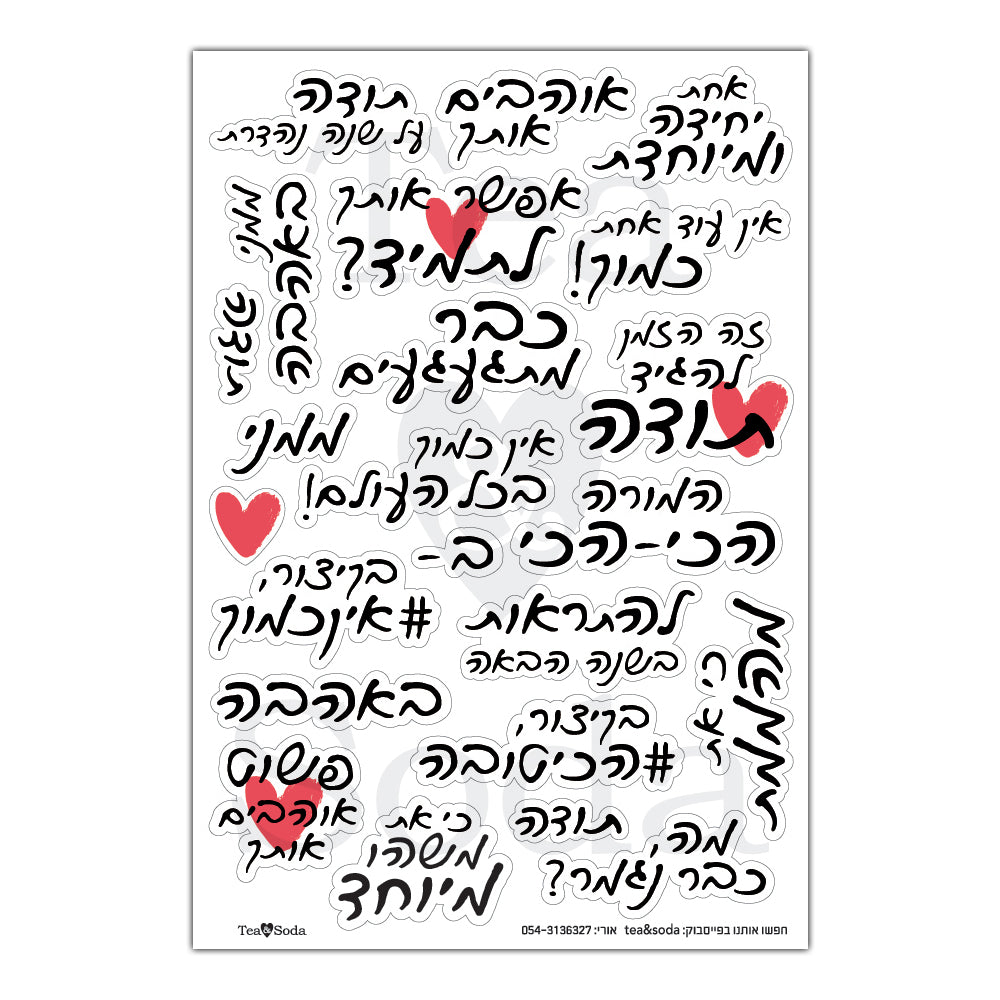 אחת
יחידה
ומיוחדת
אוהבים
אותך
תודה
על שנה נהדרת
אין עוד אחת
כמוך!
אפשר אותך
לתמיד?
ממני
באהבה
זה הזמן
להגיד
תודה
כבר
מתגעגעים
אין כמוך
בכל העולם!
ממני
המורה
הכי-הכי ב-
בקיצור,
#אינכמוך
להתראות
בשנה הבאה
הי את
מהממת
באהבה
בקיצור,
#הכיטובה
פשוט
אוהבים
אותך
כי את
משהו
מיוחד
תודה
מה,
כבר נגמר?
Tea & Soda
חפשו אותנו בפייסבוק: tea&soda אורי: 054-3136327
Tea&Soda